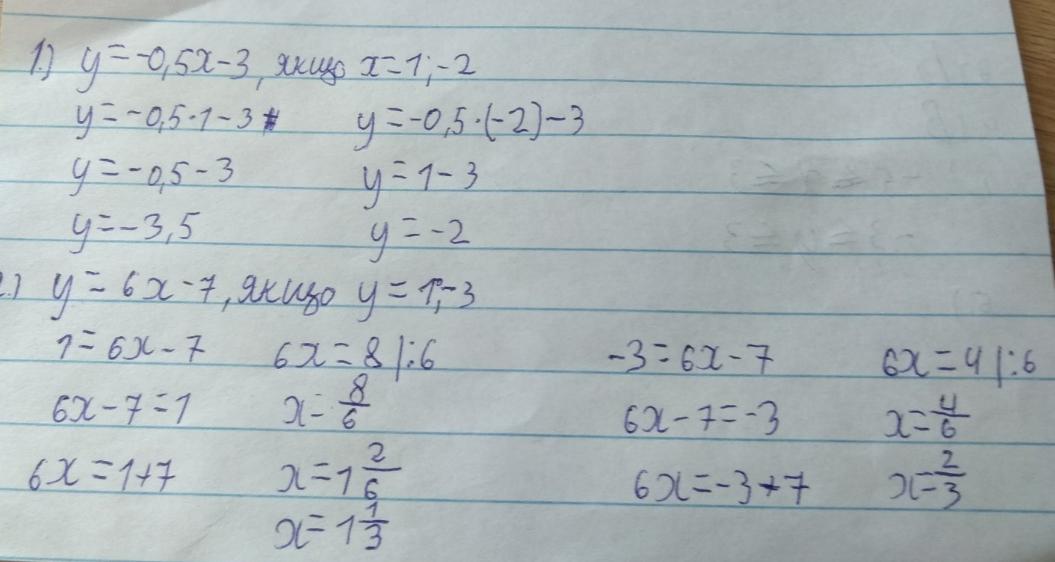 1.) y=-0,5x-3, якщо x=1;-2
y=-0,5·1-3 y=-0,5·(-2)-3
y=-0,5-3 y=1-3
y=-3,5 y=-2
2.) y=6x-7, якщо y=1;-3
1=6x-7 6x=8|:6 -3=6x-7 6x=4|:6
6x-7=1 x=8/6 6x-7=-3 x=4/6
6x=1+7 x=1 2/6 6x=-3+7 x=2/3
x=1 1/3